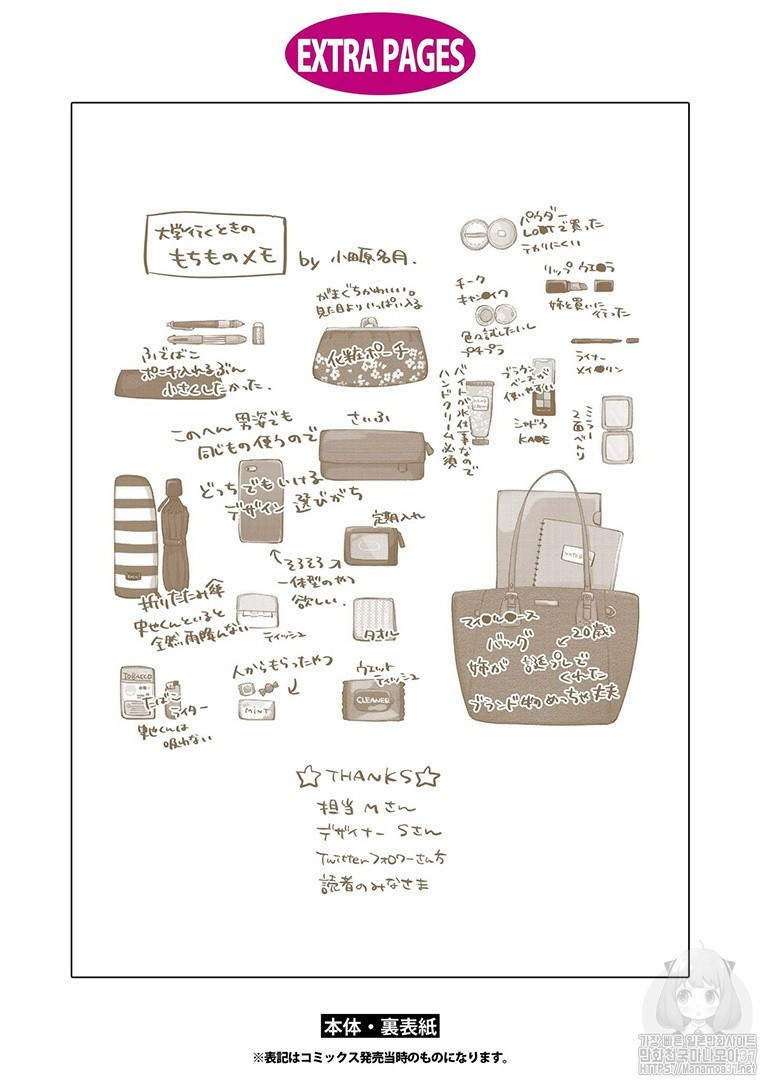 EXTRA PAGES
大学行くときの
もちものメモ
by 小田原名月.
パウダー
LOOTで買った
テカりにくい
リップ ウエ●ラ
姉と買いに
行った
チーク
キャン●イク
色々試したいし
プチプラ
ライナー
メイ●リン
がまぐちかわいい。
見た目よりいっぱい入る
化粧ポーチ
ふでばこ
ポーチ入れるぶん
小さくしたかった.
バイトが水仕事なので
ハンドクリーム必須
ブラウン
ベースが
使いやすい
シャドウ
KADE
ミラー
2面べんり
このへん 男姿でも
同じもの使うので
どっちでもいける
デザイン 選びがち
さいふ
定期入れ
そろそろ
一体型のやつ
欲しい.
折りたたみ傘
くんといると
全然雨降んない
ティッシュ
タオル
NOTE
マイ●ル●ース
バッグ
20歳い
姉が 誕プレで
くれた
ブランド物めっちゃ丈夫
TOBACCO
たばこ
ライター
くんは
吸わない
人からもらったやつ
MINT
ウエット
ティッシュ
CLEANER
☆THANKS☆
担当 Mさん
デザイナー Sさん
Twitterフォロワーさん方
読者のみなさま
本体・裏表紙
※表記はコミックス発売当時のものになります。
가장 빠른 일본만화사이트
만화천국마나모아37
HTTPS://MANAMOA37.NET